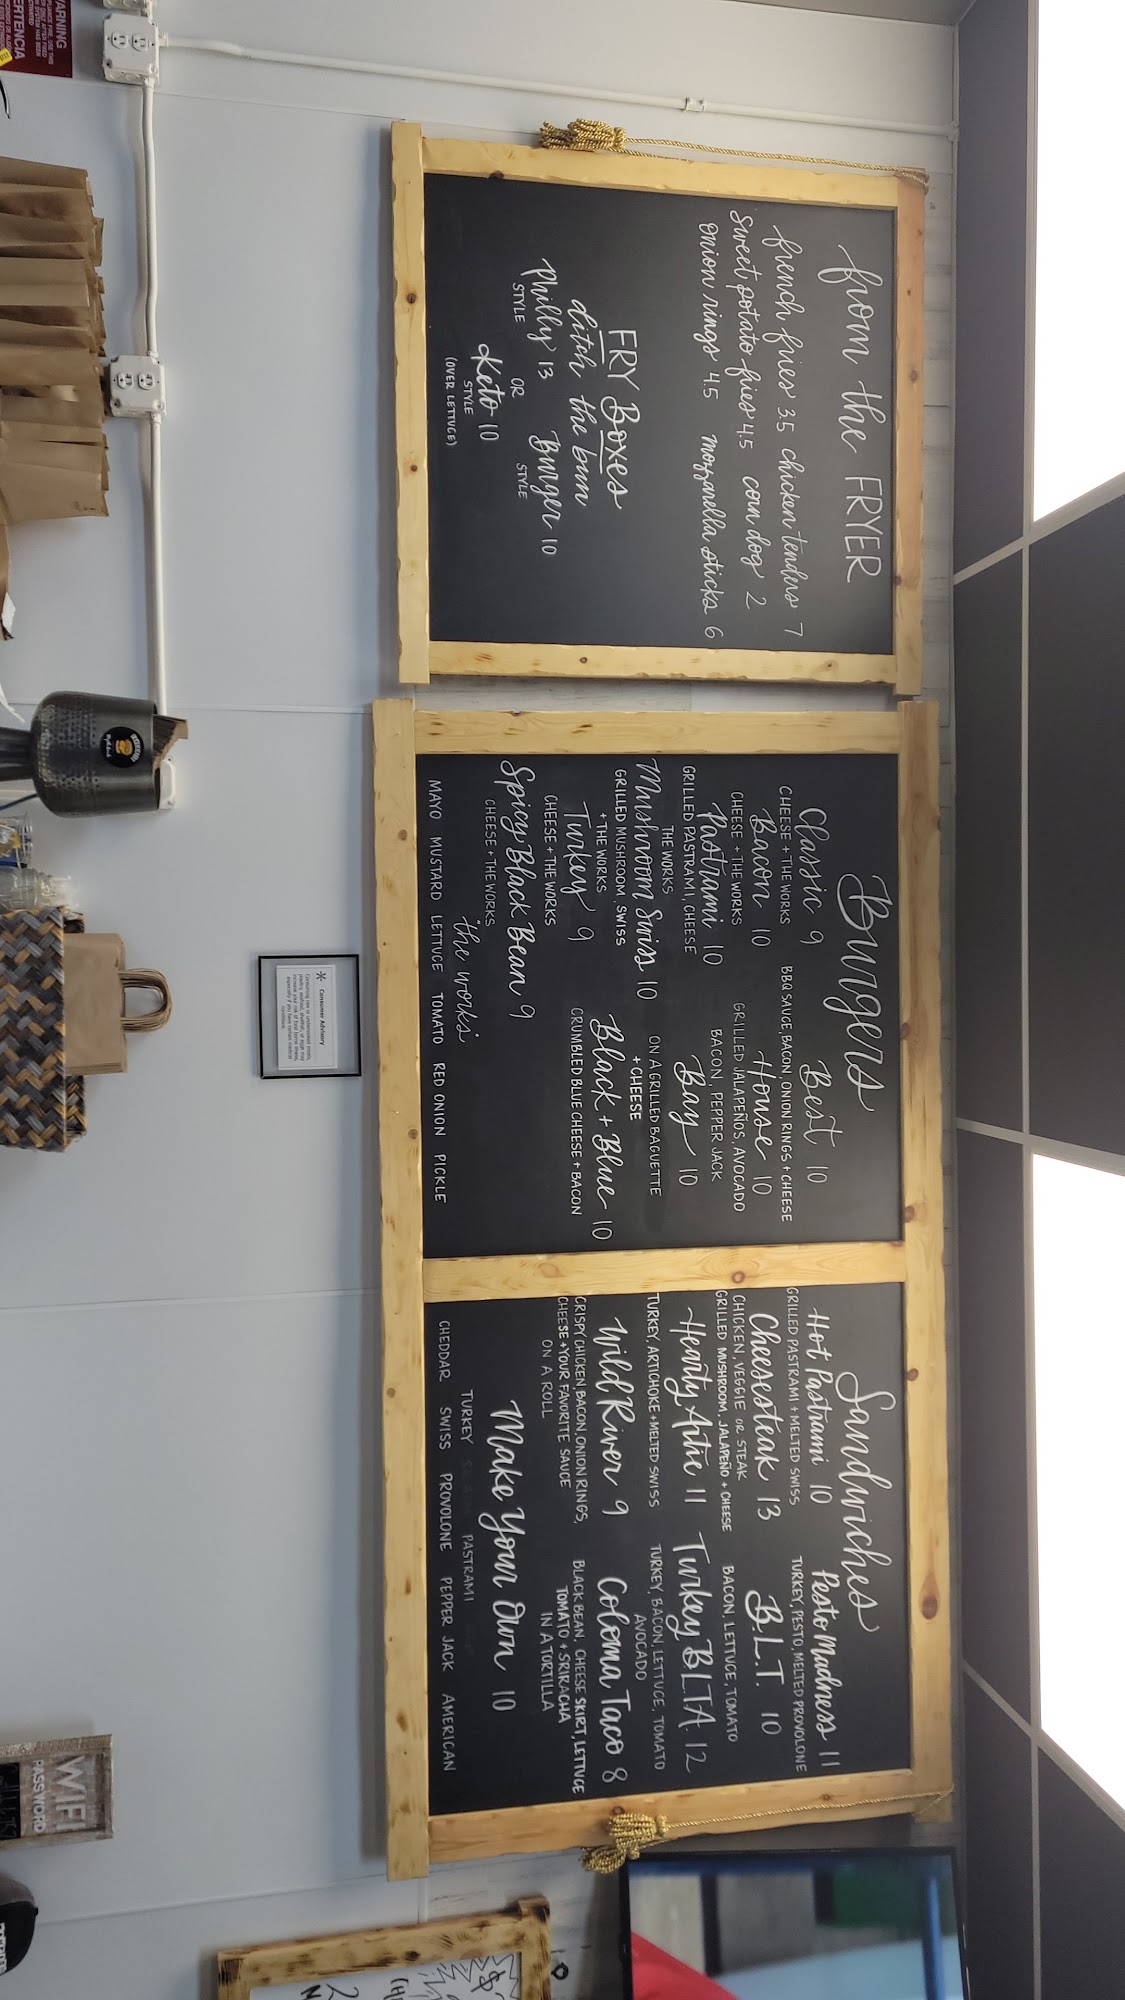 from the FRYER
french fries 3.5 chicken tenders 7
sweet potato fries 4.5 corn dog 2
onion rings 4.5 mozzarella sticks 6
FRY Boxes
ditch the bun
Philly 13 Burger 10
STYLE OR STYLE
Keto 10
STYLE
(OVER LETTUCE)
Burgers
Classic 9
CHEESE + THE WORKS
Bacon 10
CHEESE + THE WORKS
Pastrami 10
GRILLED PASTRAMI, CHEESE
THE WORKS
Mushroom Swiss 10
GRILLED MUSHROOM, SWISS
+ THE WORKS
Turkey 9
CHEESE + THE WORKS
Spicy Black Bean 9
CHEESE + THE WORKS
Best 10
BBQ SAUCE, BACON, ONION RINGS + CHEESE
House 10
GRILLED JALAPEÑOS, AVOCADO
BACON, PEPPER JACK
Bay 10
ON A GRILLED BAGUETTE
+ CHEESE
Black + Blue 10
CRUMBLED BLUE CHEESE + BACON
"the works"
MAYO MUSTARD LETTUCE TOMATO RED ONION PICKLE
Sandwiches
Hot Pastrami 10
GRILLED PASTRAMI + MELTED SWISS
Cheesesteak 13
CHICKEN, VEGGIE OR STEAK
GRILLED MUSHROOM, JALAPEÑO + CHEESE
Hearty Artie 11
TURKEY, ARTICHOKE + MELTED SWISS
Wild River 9
CRISPY CHICKEN, BACON, ONION RINGS,
CHEESE + YOUR FAVORITE SAUCE
ON A ROLL
Pesto Madness 11
TURKEY, PESTO, MELTED PROVOLONE
B.L.T. 10
BACON, LETTUCE, TOMATO
Turkey BLTA 12
TURKEY, BACON, LETTUCE, TOMATO
AVOCADO
Coloma Taco 8
BLACK BEAN, CHEESE SKIRT, LETTUCE
TOMATO + SRIRACHA
IN A TORTILLA
Make Your Own 10
TURKEY PASTRAMI
CHEDDAR SWISS PROVOLONE PEPPER JACK AMERICAN
Consumer Advisory
WARNING
WIFI
PASSWORD